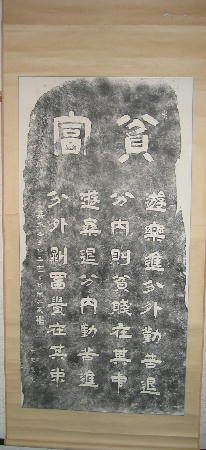 貧富
遊樂進分外勤苦退
分内則貧賤在其中
遊樂退分内勤苦進
分外則冨貴在其中